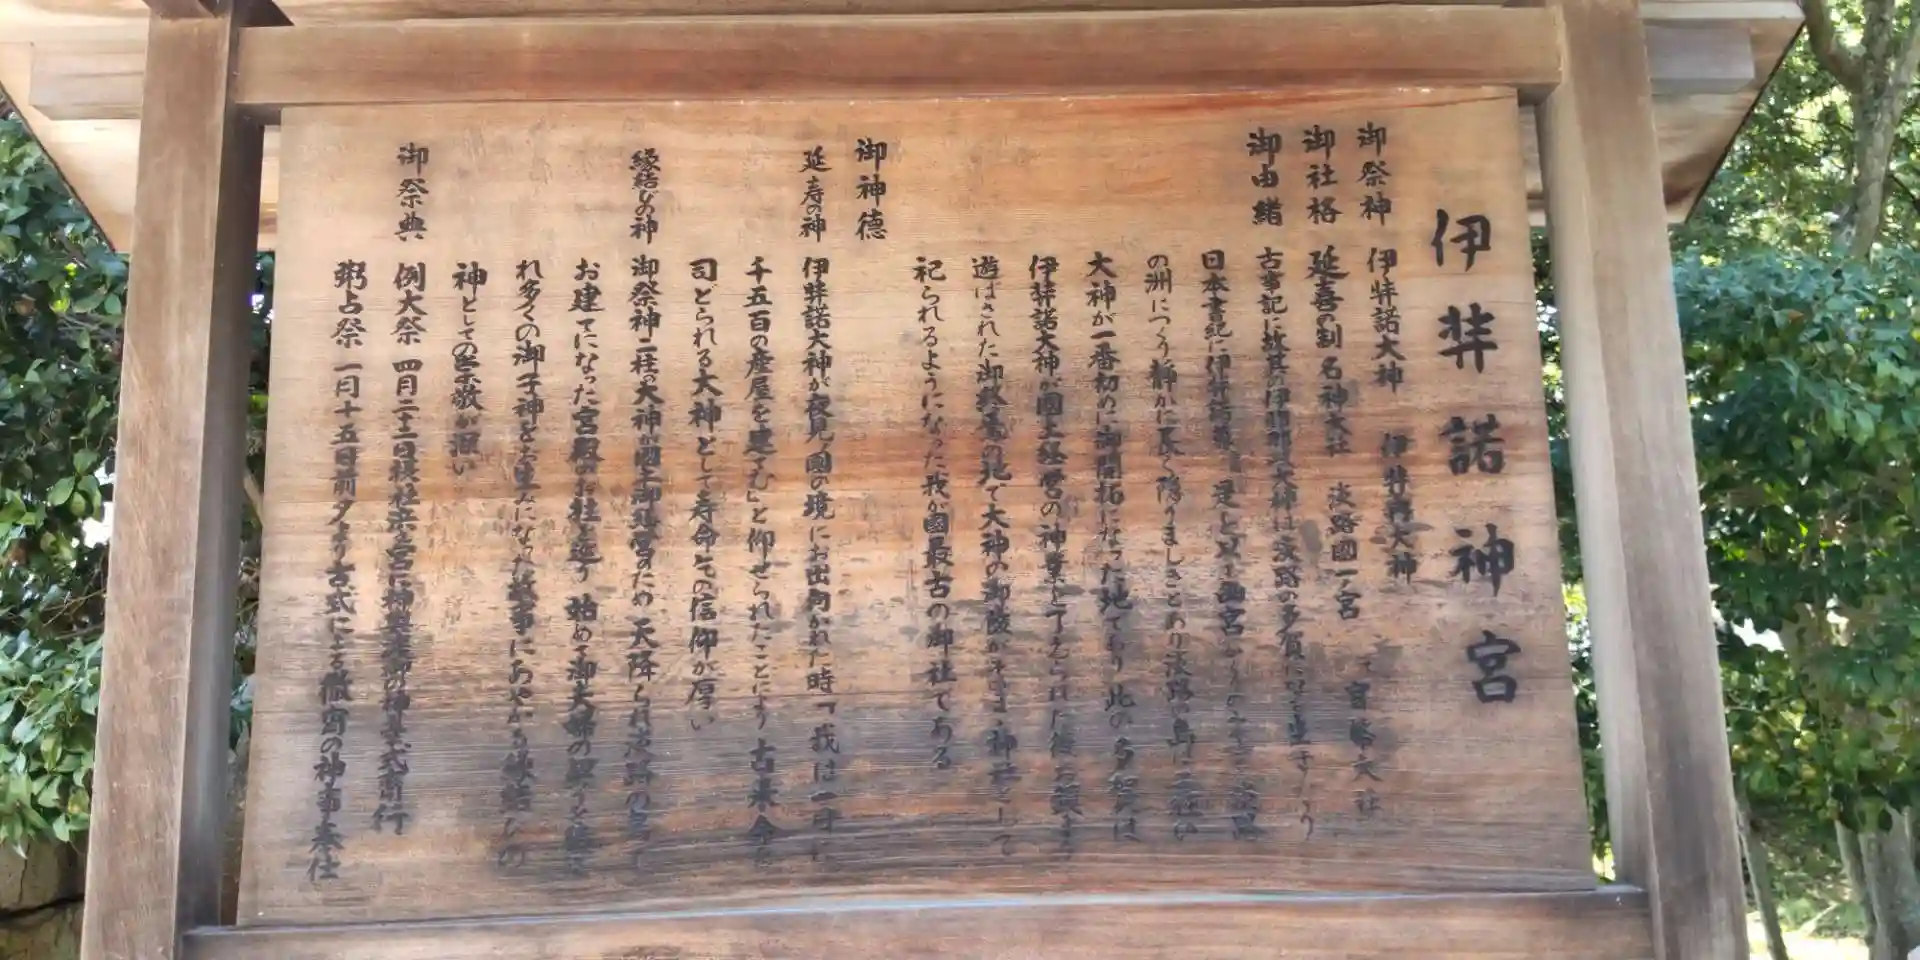 伊弉諾神宮
御祭神 伊弉諾大神 伊弉冉大神
御社格 延喜の制 名神大社 淡路國一宮 官幣大社
御由緒 古事記に故其の伊耶那岐大神は淡路の多賀に
日本書紀に伊弉諾尊 是以 幽宮を
の洲につくり静かに長く隠りましきとあり淡路の島は二柱の
大神が一番初めに御開拓になった地であり 此の多賀は
伊弉諾大神が國土経営の神業を了えられた後お鎮まり
遊ばされた御終焉の地で大神の御陵がそのまま神社として
祀られるようになった我が國最古の御社である
御神徳
延寿の神 伊弉諾大神が夜見の國の境にお出向かれた時「我は一日に
千五百の産屋を建てむ」と仰せられたことにより古来命を
司どられる大神として寿命乞の信仰が厚い
縁結びの神 御祭神二柱の大神が國土御経営のため 天降られ淡路の島で
お建てになった宮殿がお社と 始めて御夫婦の
れ多くの御子神をお生みになった故事にあやかる縁結びの
神としての崇敬が深い
御祭典 例大祭 四月二十二日 に神輿渡御の神幸式斎行
粥占祭 一月十五日前夕より古式による徹宵の神事奉仕